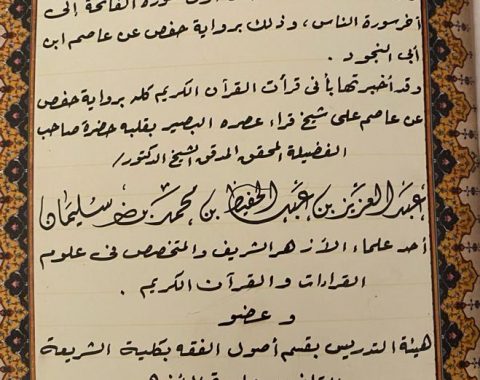 سورة الفاتحة إلى
آخر سورة الناس ، وذلك برواية حفص عن عاصم ابن
أبى النجود .
وقد أخبرتها بأنى قرأت القرآن الكريم كله برواية حفص
عن عاصم على شيخ قراء عصره البصير بقلبه حضرة صاحب
الفضيلة المحقق المدقق الشيخ الدكتور/
عبد العزيز بن عبد الحفيظ بن محمد بن سليمان
أحد علماء الأزهر الشريف والمتخصص فى علوم
القراءات والقرآن الكريم .
وعضو
هيئة التدريس بقسم أصول الفقه بكلية الشريعة